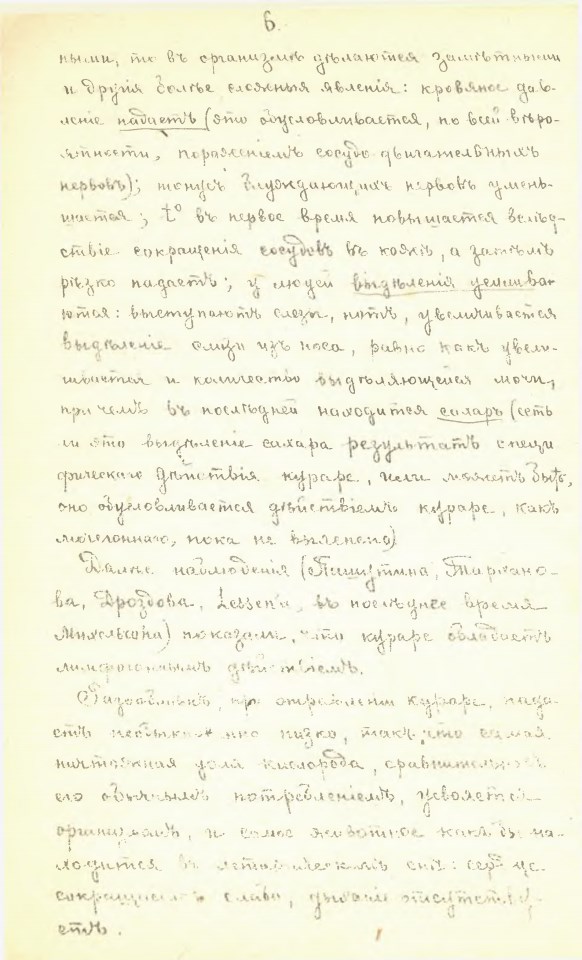 6.
ными, то въ организмѣ дѣлаются замѣтными
и другія болѣе сложныя явленія: кровяное дав-
леніе падаетъ (это обусловливается, по всей вѣро-
ятности, пораженіемъ сосудо-двигательныхъ
нервовъ); тонусъ блуждающихъ нервовъ умень-
шается; t° въ первое время повышается вслѣд-
ствіе сокращенія сосудовъ въ кожѣ, а затѣмъ
рѣзко падаетъ; у людей выдѣленія усилива-
ются: выступаютъ слезы, потъ, увеличивается
выдѣленіе слизи изъ носа, равно какъ увели-
чивается и количество выдѣляющейся мочи,
при чемъ въ послѣдней находится сахаръ (есть
ли это выдѣленіе сахара результатъ специ
фическаго дѣйствія кураре, или можетъ быть,
оно обусловливается дѣйствіемъ кураре, какъ
мочегоннаго, пока не выяснено)
Далѣе наблюденія (Пашутина, Тархано-
ва, Дроздова, Lessen'a, въ послѣднее время
Михельсона) показали, что кураре обладаетъ
лимфогоннымъ дѣйствіемъ.
Газообмѣнъ, при отравленіи кураре, пада-
етъ необыкновенно низко, такъ что самая
ничтожная доля кислорода, сравнительно съ
его обычнымъ потребленіемъ, усвояется
организмомъ, и самое животное какъ бы на-
ходится въ летаргическомъ снѣ: сердце
сокращается слабо, дыханіе отсутству-
етъ.